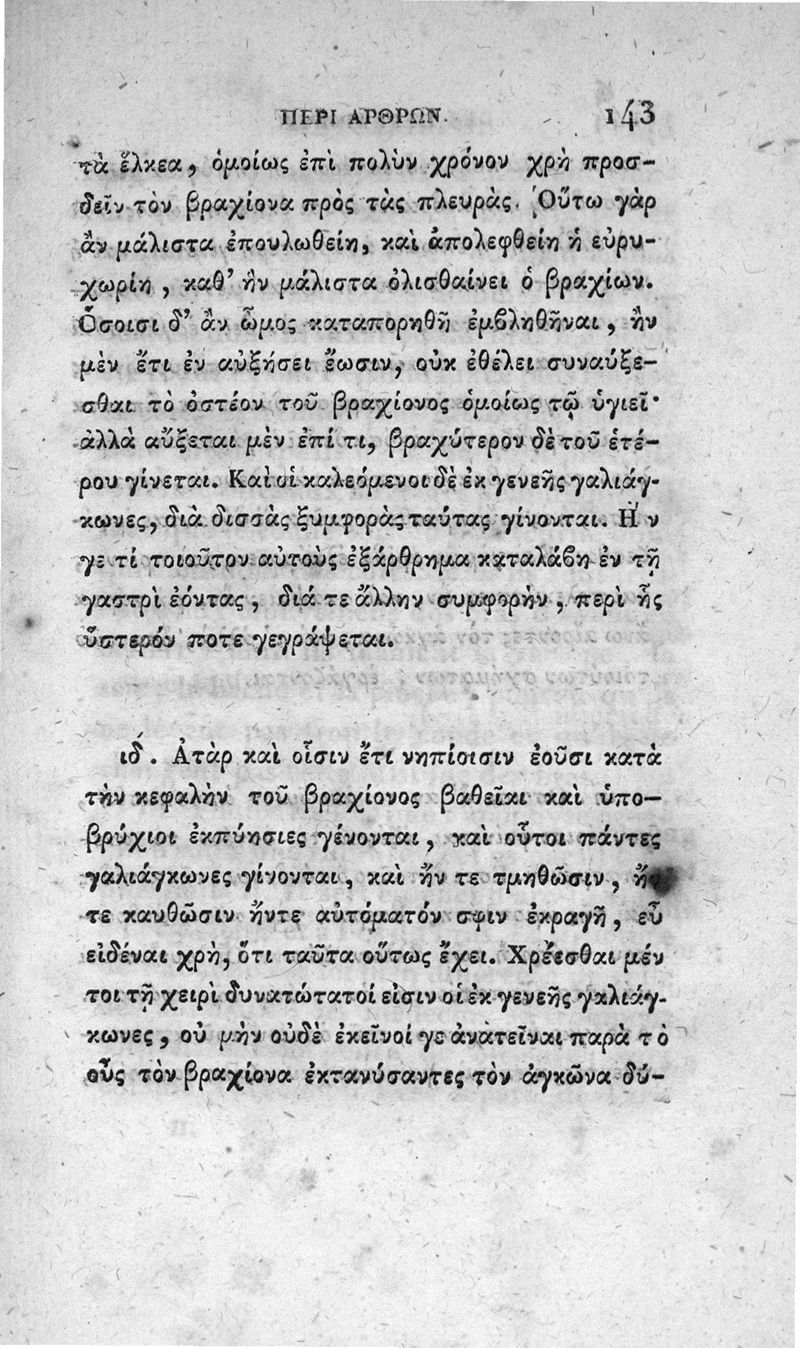 ΠΕΡΙ ΑΡΘΡΩΝ. 143
τὰ ἕλκεα, ὁμοίως ἐπὶ πολὺν χρόνον χρὴ προσ-
δεῖν τὸν βραχίονα πρὸς τὰς πλευράς. Οὕτω γὰρ
ἂν μάλιστα ἐπουλωθείη, καὶ ἀπολεφθείη ἡ εὐρυ-
χωρίη, καθ' ἣν μάλιστα ὀλισθαίνει ὁ βραχίων.
Ὅσοισι δ' ἂν ὦμος καταπορηθῇ ἐμβληθῆναι, ἢν
μὲν ἔτι ἐν αὐξήσει ἔωσιν, οὐκ ἐθέλει συναύξε-
σθαι τὸ ὀστέον τοῦ βραχίονος ὁμοίως τῷ ὑγιεῖ·
ἀλλὰ αὔξεται μὲν ἐπί τι, βραχύτερον δὲ τοῦ ἑτέ-
ρου γίνεται. Καὶ οἱ καλεόμενοι δὲ ἐκ γενεῆς γαλιάγ-
κωνες, διὰ δισσὰς ξυμφορὰς ταύτας γίνονται. Ἤ ν
γε τί τοιοῦτον αὐτοὺς ἐξάρθρημα καταλάβη ἐν τῇ
γαστρὶ ἐόντας, διά τε ἄλλην συμφορὴν, περὶ ἧς
ὕστερόν ποτε γεγράψεται.
ιδ'. Ἀτὰρ καὶ οἷσιν ἔτι νηπίοισιν ἐοῦσι κατὰ
τὴν κεφαλὴν τοῦ βραχίονος βαθεῖαι καὶ ὑπο-
βρύχιοι ἐκπύησιες γένονται, καὶ οὗτοι πάντες
γαλιάγκωνες γίνονται, καὶ ἤν τε τμηθῶσιν, ἤν
τε καυθῶσιν ἤντε αὐτόματόν σφιν ἐκραγῇ, εὖ
εἰδέναι χρὴ, ὅτι ταῦτα οὕτως ἔχει. Χρέεσθαι μέν
τοι τῇ χειρὶ δυνατώτατοί εἰσιν οἱ ἐκ γενεῆς γαλιάγ-
κωνες, οὐ μὴν οὐδὲ ἐκεῖνοί γε ἀνατεῖναι παρὰ τὸ
οὖς τὸν βραχίονα ἐκτανύσαντες τὸν ἀγκῶνα δύ-